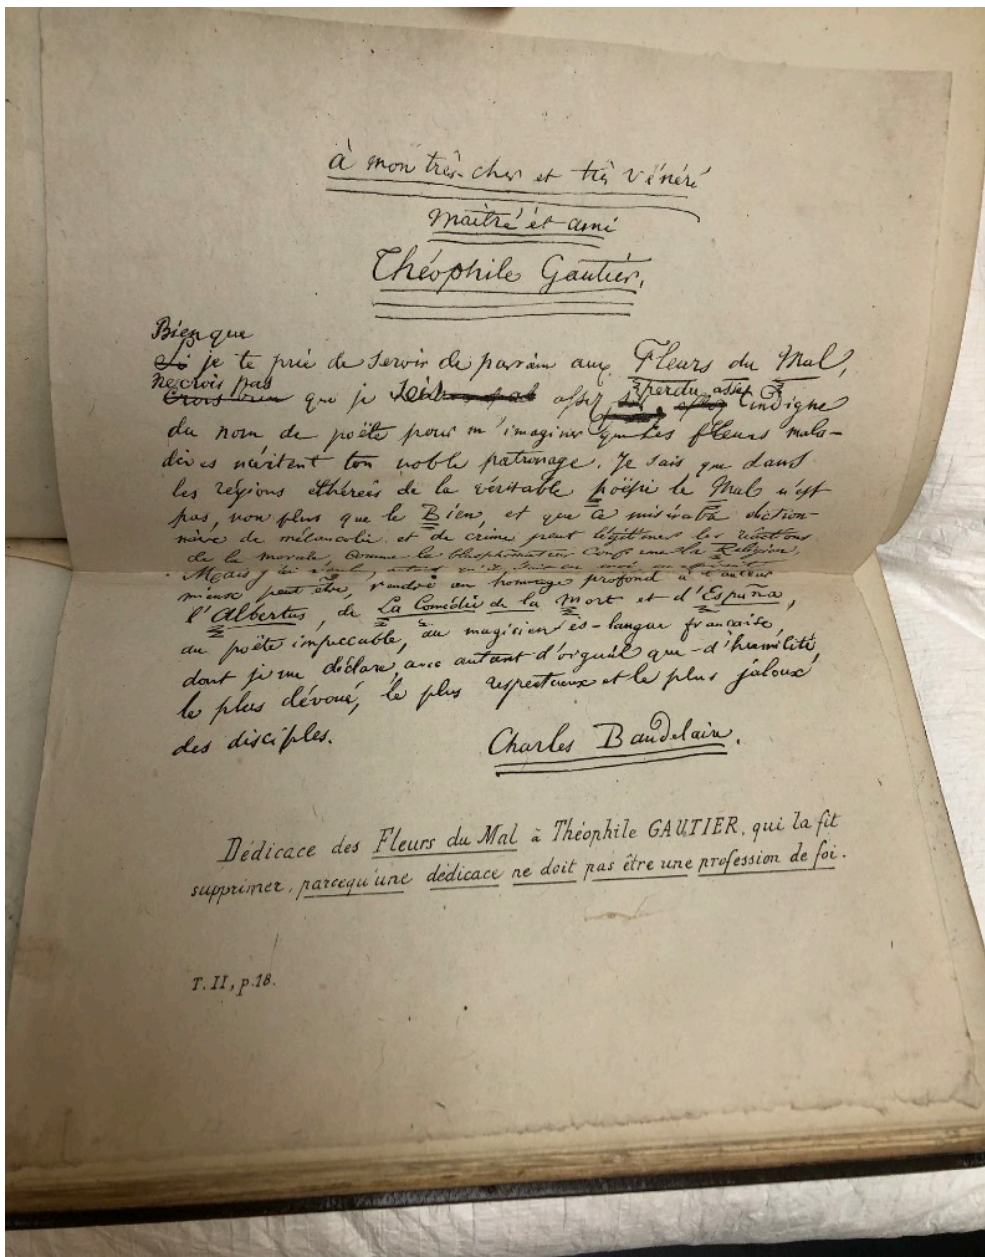 à mon très-cher et très vénéré
Maître et ami
Théophile Gautier.
Bien que
Si je te prie de servir de parrain aux Fleurs du Mal,
Ne crois pas perdu assez
que je sois assez indigne
du nom de poëte pour m'imaginer que ces fleurs mala-
dives méritent ton noble patronage. Je sais que dans
les régions éthérées de la véritable poësie le Mal n'est
pas, non plus que le Bien, et que ce misérable diction-
naire de mélancolie et de crime peut légitimer les réactions
de la morale, comme le blasphémateur confirme la Religion.
Mais j'ai voulu, autant qu'il était en moi, en espérant
mieux peut être, rendre un hommage profond à l'auteur
d'Albertus, de La Comédie de la Mort et d'España,
au poëte impeccable, au magicien ès-langue française,
dont je me déclare, avec autant d'orgueil que d'humilité,
le plus dévoué, le plus respectueux et le plus jaloux
des disciples.
Charles Baudelaire.
Dédicace des Fleurs du Mal à Théophile GAUTIER, qui la fit
supprimer, parcequ'une dédicace ne doit pas être une profession de foi.
T. II, p. 18.